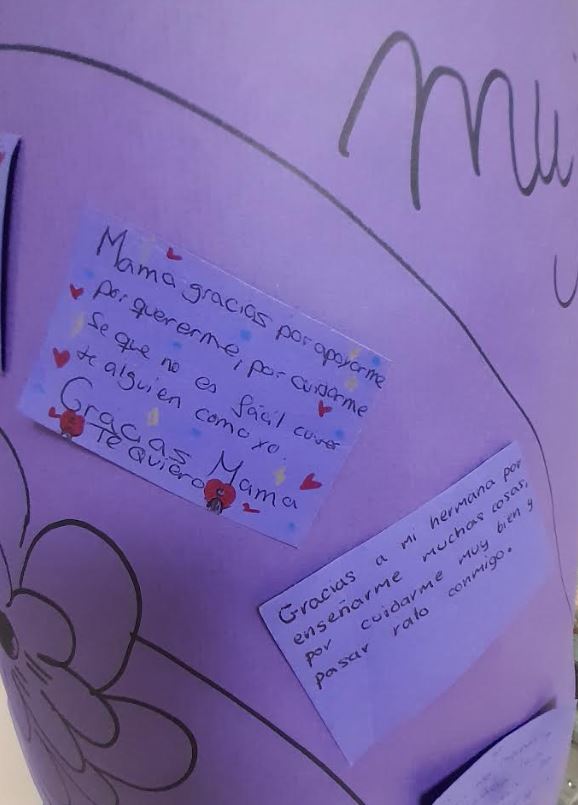 Mu
Mama gracias por apoyarme
por quererme, por cuidarme
Se que no es fácil
te alguien como yo.
Gracias Mama
Te Quiero
Gracias a mi hermana por
enseñarme muchas cosas,
por cuidarme muy bien y
pasar rato conmigo.